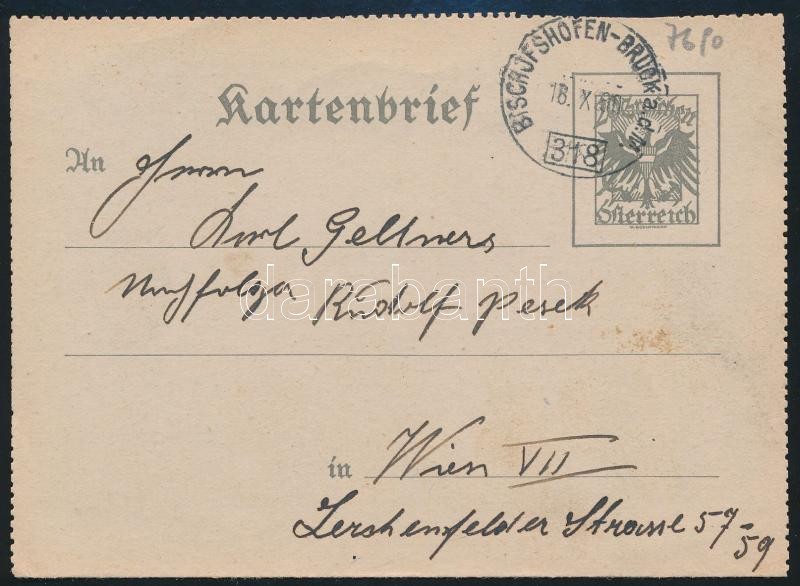 7610
BISCHOFSHOFEN-BRUCK a.d.M.
18. X.
318
Kartenbrief
Groschen
Österreich
An Herrn
Karl Geltners
Nachfolger Rudolf Pesek
darabanth
in Wien VII
Lerchenfelder Strasse 57-
59